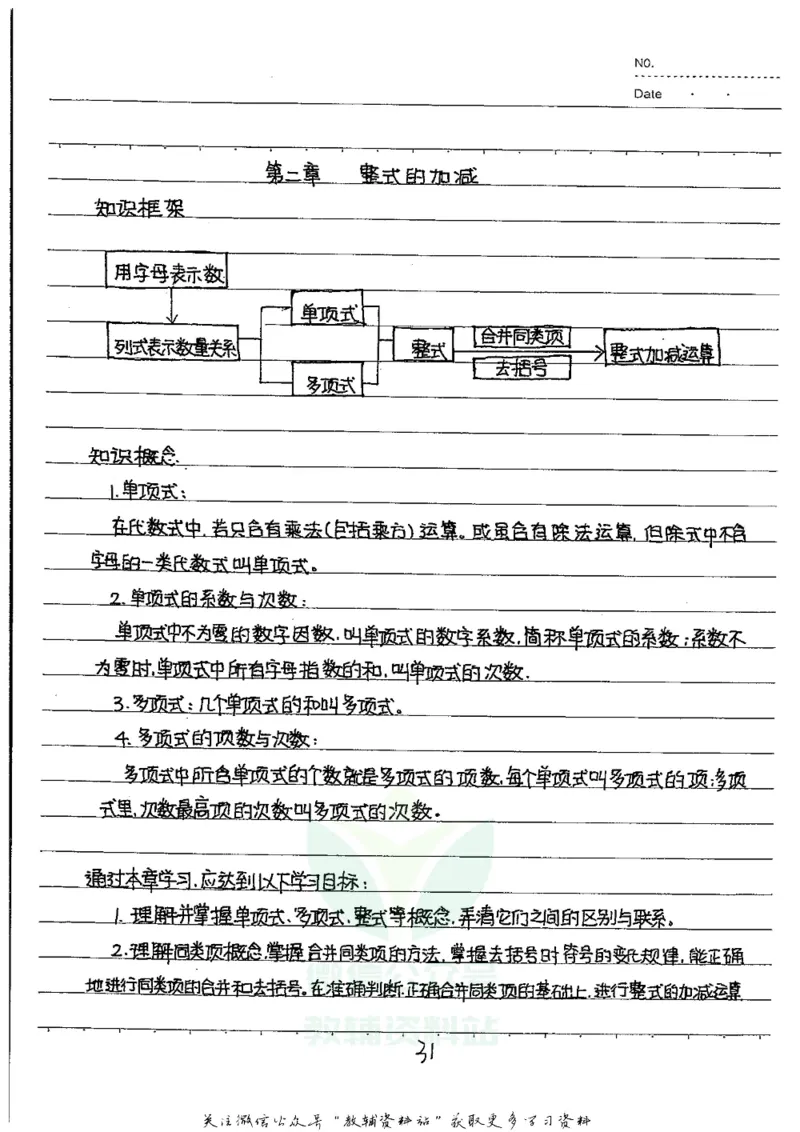 NO.
Date
第二章 整式的加减
知识框架
用字母表示数
单项式
列式表示数量关系
整式
合并同类项
去括号
整式加减运算
多项式
知识概念
1.单项式:
在代数式中,若只含有乘法(包括乘方)运算。或虽含有除法运算,但除式中不含
字母的一类代数式叫单项式。
2.单项式的系数与次数:
单项式中不为零的数字因数,叫单项式的数字系数,简称单项式的系数;系数不
为零时,单项式中所有字母指数的和,叫单项式的次数.
3.多项式:几个单项式的和叫多项式。
4.多项式的项数与次数:
多项式中所含单项式的个数就是多项式的项数,每个单项式叫多项式的项;多项
式里,次数最高项的次数叫多项式的次数。
通过本章学习,应达到以下学习目标:
1.理解并掌握单项式、多项式、整式等概念,弄清它们之间的区别与联系。
2.理解同类项概念,掌握合并同类项的方法,掌握去括号时符号的变化规律,能正确
地进行同类项的合并和去括号。在准确判断、正确合并同类项的基础上,进行整式的加减运算
教辅资料站
31
关注微信公众号"教辅资料站"获取更多学习资料